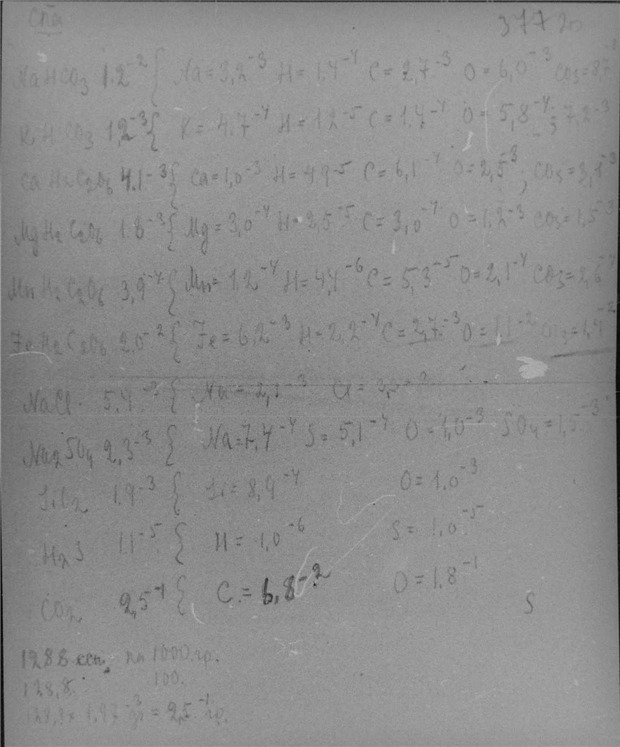 NaHCO3 1.2⁻² { Na = 3,2⁻³ H = 1,4⁻⁴ C = 2,7⁻³ O = 6,0⁻³ CO3 = 8,7
KHCO3 1,2⁻³ { K = 4.7⁻⁴ H = 1.2⁻⁵ C = 1.4⁻⁴ O = 5,8⁻⁴ 7,2⁻³
CaH2C2O6 4.1⁻³ { Ca = 1,0⁻³ H = 4.9⁻⁵ C = 6,1⁻⁴ O = 2,5⁻³; CO3 =
MgH2C2O6 1.8⁻³ { Mg = 3,0⁻⁴ H = 2,5⁻⁵ C = 3,0⁻⁴ O = 1.2⁻³ CO3 = 1,5⁻³
MnH2C2O6 3,9⁻⁴ { Mn = 1.2⁻⁴ H = 4,4⁻⁶ C = 5,3⁻⁵ O = 2,1⁻⁴ CO3 = 2,6⁻⁴
FeH2C2O6 2.0⁻² { Fe = 6,2⁻³ H = 2,2⁻⁴ C = 2,7⁻³ O = 1.1⁻² CO3 = 1,4⁻²
NaCl 5.4⁻³ { Na = 2,1⁻³ Cl =
Na2SO4 2,3⁻³ { Na = 7,4⁻⁴ S = 5,1⁻⁴ O = 1,0⁻³ SO4 = 1,5⁻³
SiO2 1.9⁻³ { Si = 8,9⁻⁴ O = 1.0⁻³
H2S 1.1⁻⁵ { H = 1,0⁻⁶ S = 1,0⁻⁵
CO2 2,5⁻¹ { C = 6,8⁻² O = 1.8⁻¹
S
1288 на 1000 гр.
128,8 100.
128,8 × 1,97⁻³ = 2,5⁻¹ гр.